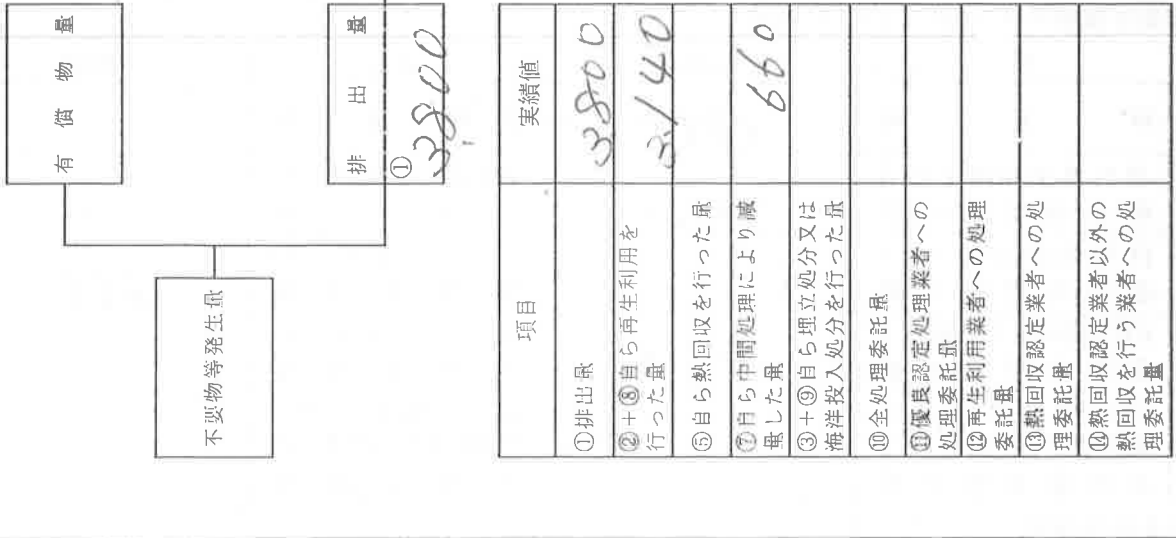 不要物等発生量
有償物量
排出量
①
3800
項目
実績値
①排出量
3800
②+⑧自ら再生利用を
行った量
3140
⑤自ら熱回収を行った量
⑦自ら中間処理により減
量した量
660
③+⑨自ら埋立処分又は
海洋投入処分を行った量
⑩全処理委託量
⑪優良認定処理業者への
処理委託量
⑫再生利用業者への処理
委託量
⑬熱回収認定業者への処
理委託量
⑭熱回収認定業者以外の
熱回収を行う業者への処
理委託量